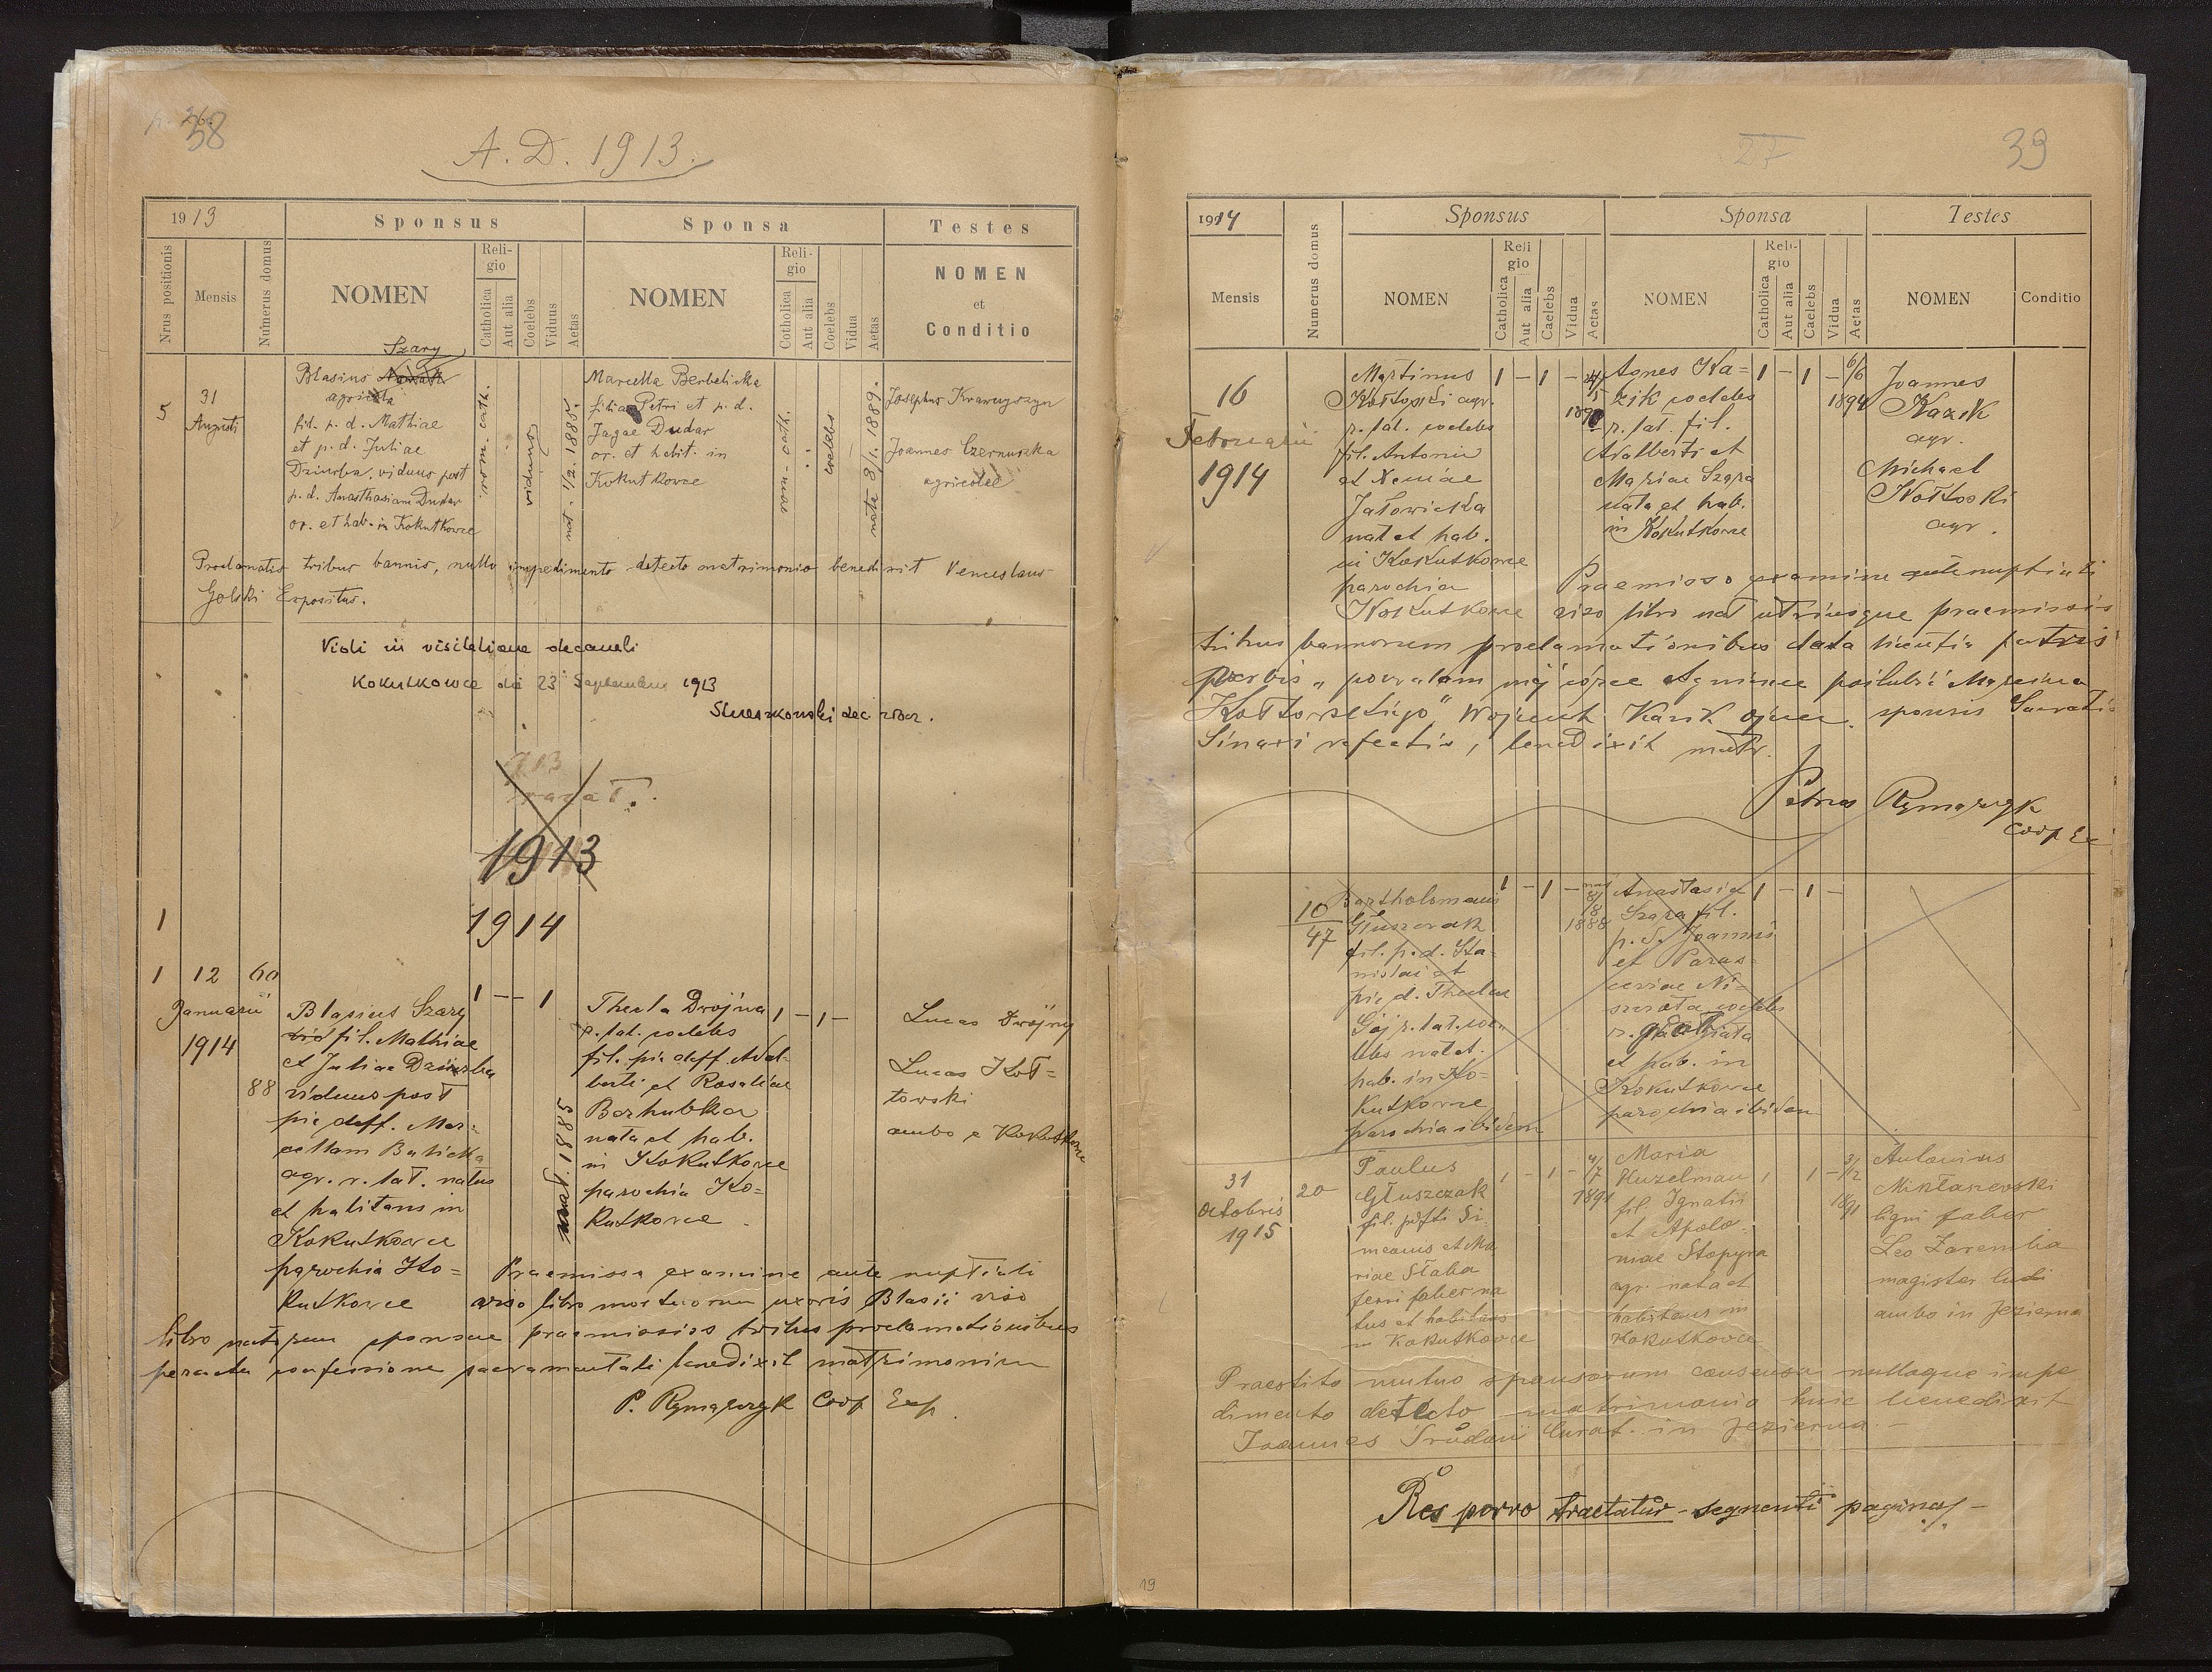 38
A. D. 1913.
1913
Sponsus
Sponsa
Testes
Nrus positionis
Mensis
Numerus domus
NOMEN
Religio
Catholica
Aut alia
Coelebs
Viduus
Aetas
NOMEN
Religio
Catholica
Aut alia
Coelebs
Vidua
Aetas
NOMEN
et
Conditio
5
31
Augusti
Szary
Blasius Nowak
agricola
fil. p. d. Mathiae
et p. d. Juliae
Dziurba, viduus post
p. d. Anasthasiam Dudar
or. et hab. in Kokutkowce
rom. cath.
viduus
nat. 1/2. 1885
Marcella Berbelicka
filia Petri et p. d.
Jagae Dudar
or. et habit. in
Kokutkowce
rom. cath.
coelebs
nata 8/1. 1889.
Josephus Krawczyszyn
Joannes Czernuszka
agricolae
Proclamatis tribus bannis, nullo impedimento detecto matrimonio benedixit Venceslaus
Golski Expositus.
Vidi in visitatione decanali
Kokutkowce die 23 Septembris 1913
1913
1914
1
1
12
60
Januarii
1914
88
Blasius Szary
fil. Mathiae
et Juliae Dziurba
viduus post
pie deff. Mar=
cellam Balicka
agr. r. lat. natus
et habitans in
Kokutkowce
parochia Ko=
kutkowce
1 — — 1
nat. 1885
Thecla Dwojna
r. lat. coelebs
fil. pie deff. Adal=
berti et Rosaliae
nata et hab.
in Kokutkowce
parochia Ko=
kutkowce
1 — 1 —
Lucas Dwojny
Lucas Koł=
towski
ambo e Kokutkowce
Praemisso examine ante nuptiali
viso libro mortuorum uxoris Blasii viso
libro natorum sponsae praemissis tribus proclamationibus
peracta confessione sacramentali benedixit matrimonium
P. Rymarczyk Coop Exp
27
39
1914
Sponsus
Sponsa
Testes
Mensis
Numerus domus
NOMEN
Religio
Catholica
Aut alia
Caelebs
Vidua
Aetas
NOMEN
Religio
Catholica
Aut alia
Caelebs
Vidua
Aetas
NOMEN
Conditio
16
Februarii
1914
Martinus
Kołtowski agr.
r. lat. coelebs
fil. Antonii
et Xeniae
Jałowicka
nat et hab.
in Kokutkowce
parochia
Kokutkowce
1 — 1 —
Agnes Ka=
zik coelebs
r. lat. fil.
Adalberti et
Mariae Szara
nata et hab.
in Kokutkowce
1 — 1 —
6/6
1894
Joannes
Kazik
agr.
Michael
Kołtoski
agr.
Praemisso examine antenuptiali
viso libro nat utriusque praemissis
tribus bannorum proclamationibus data licentia patris
verbis „pozwalam mojej córce Agnieszce poślubić Marcina
Kołtowskiego" Wojciech Kazik ojciec. sponsis Sacrati
Sinaxi refectis, benedixit matr.
Petrus Rymarczyk
Coop Ex
10
47
Bartholomaeus
Głuszczak
fil. p. d. Sta=
nislai et
pie d. Theclae
Gój r. lat. coe
lebs nat et.
hab. in Ko=
kutkowce
parochia ibidem
1 — 1 —
1888
Anastasia
Szara fil.
p. d. Joannis
et Paras=
ceviae Ni=
et hab. in
Kokutkowce
parochia ibidem
1 — 1 —
31
Octobris
1915
20
Paulus
Głuszczak
fil. Si
meonis et Ma
riae Słaba
ferri faber na
tus et habitans
in Kokutkowce
1 — 1 —
4/7
1891
Maria
Kuzelman
fil. Ignatii
et Apolo=
niae Stopyra
agr. nata et
habitans in
Kokutkowce
1 1 —
3/12
1891
Antonius
Mikłaszewski
ligni faber
Leo Zaremba
magister ludi
ambo in Jezierna
Praestito mutuo sponsorum consensu nulloque impe
dimento detecto matrimonio huic benedixit
Joannes Curat. in Jezierna
Res porro tractatur - sequenti pagina/. -
19